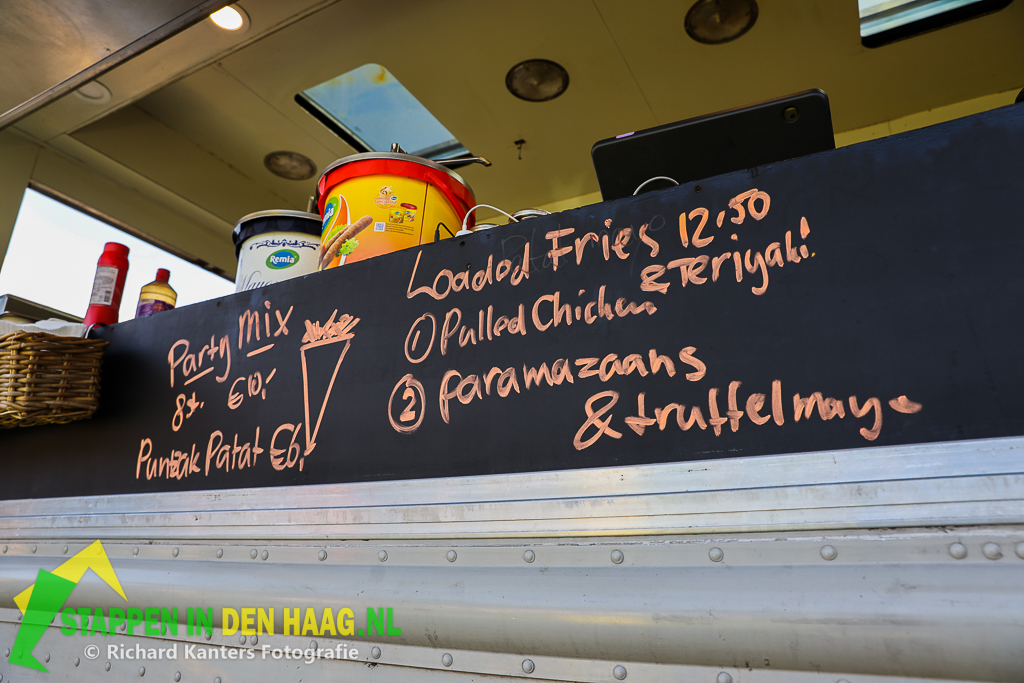 Remia
Remia
Party mix
8st. €10,-
Puntzak Patat €6,-
Loaded Fries 12,50
① Pulled Chicken & Teriyaki!
② Paramazaans
& truffelmayo
STAPPEN IN DEN HAAG.NL
© Richard Kanters Fotografie